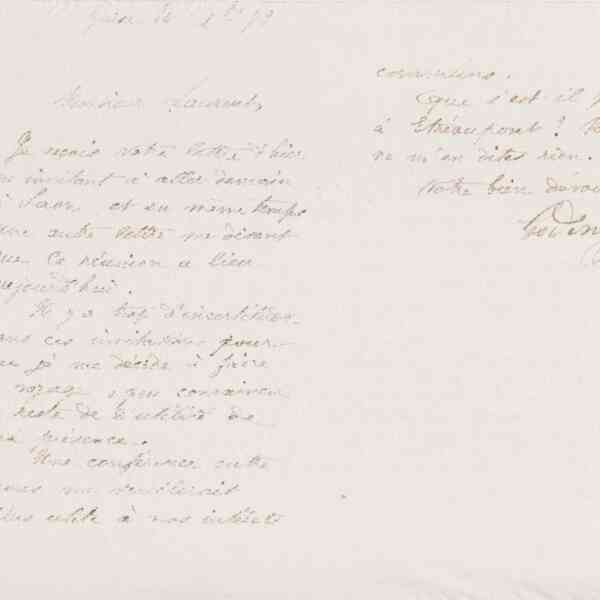 Guise 14 9bre 79
Monsieur Laurent,
Je reçois votre lettre d'hier
m'invitant à aller demain
à Laon et en même temps
une autre lettre me disant
que la réunion a lieu
aujourd'hui.
Il y a trop d'incertitude
dans ces invitations pour
que je me décide à faire
voyage, peu convaincu
reste de l'utilité de
ma présence.
Une conférence entre
nous me semblerait
plus utile à nos intérêts
communs.
Que s'est il p
à Etréaupont? V
ne m'en dites rien.
Votre bien dévou
Godin